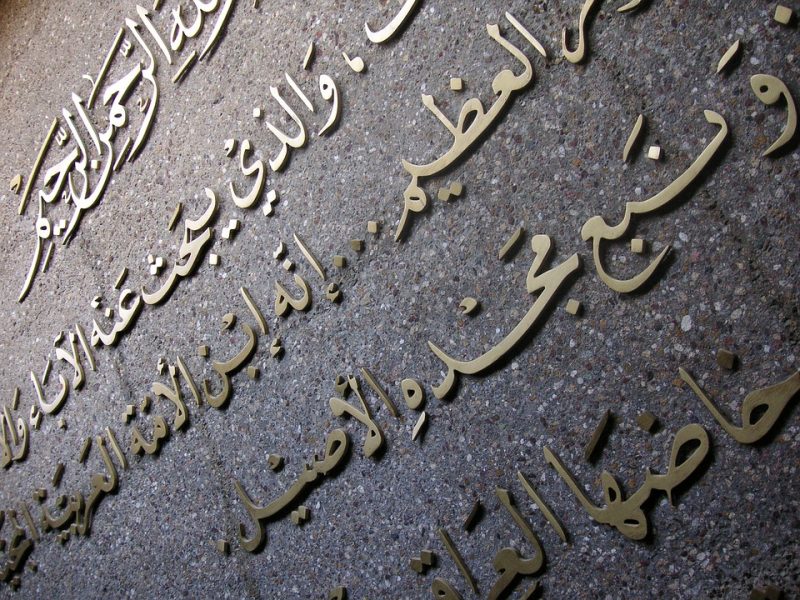 الله الرحمن الرحيم
، والذي يبحث عنه الآباء
العظيم ... إنه ابن الأمة العربية
ونبع مجده الأصيل.
خاضها العراق